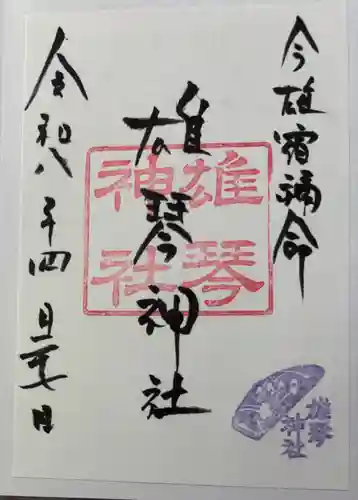 今雄宿祢命
雄琴神社
雄琴
神社
令和八年四月廿七日
雄琴
神社